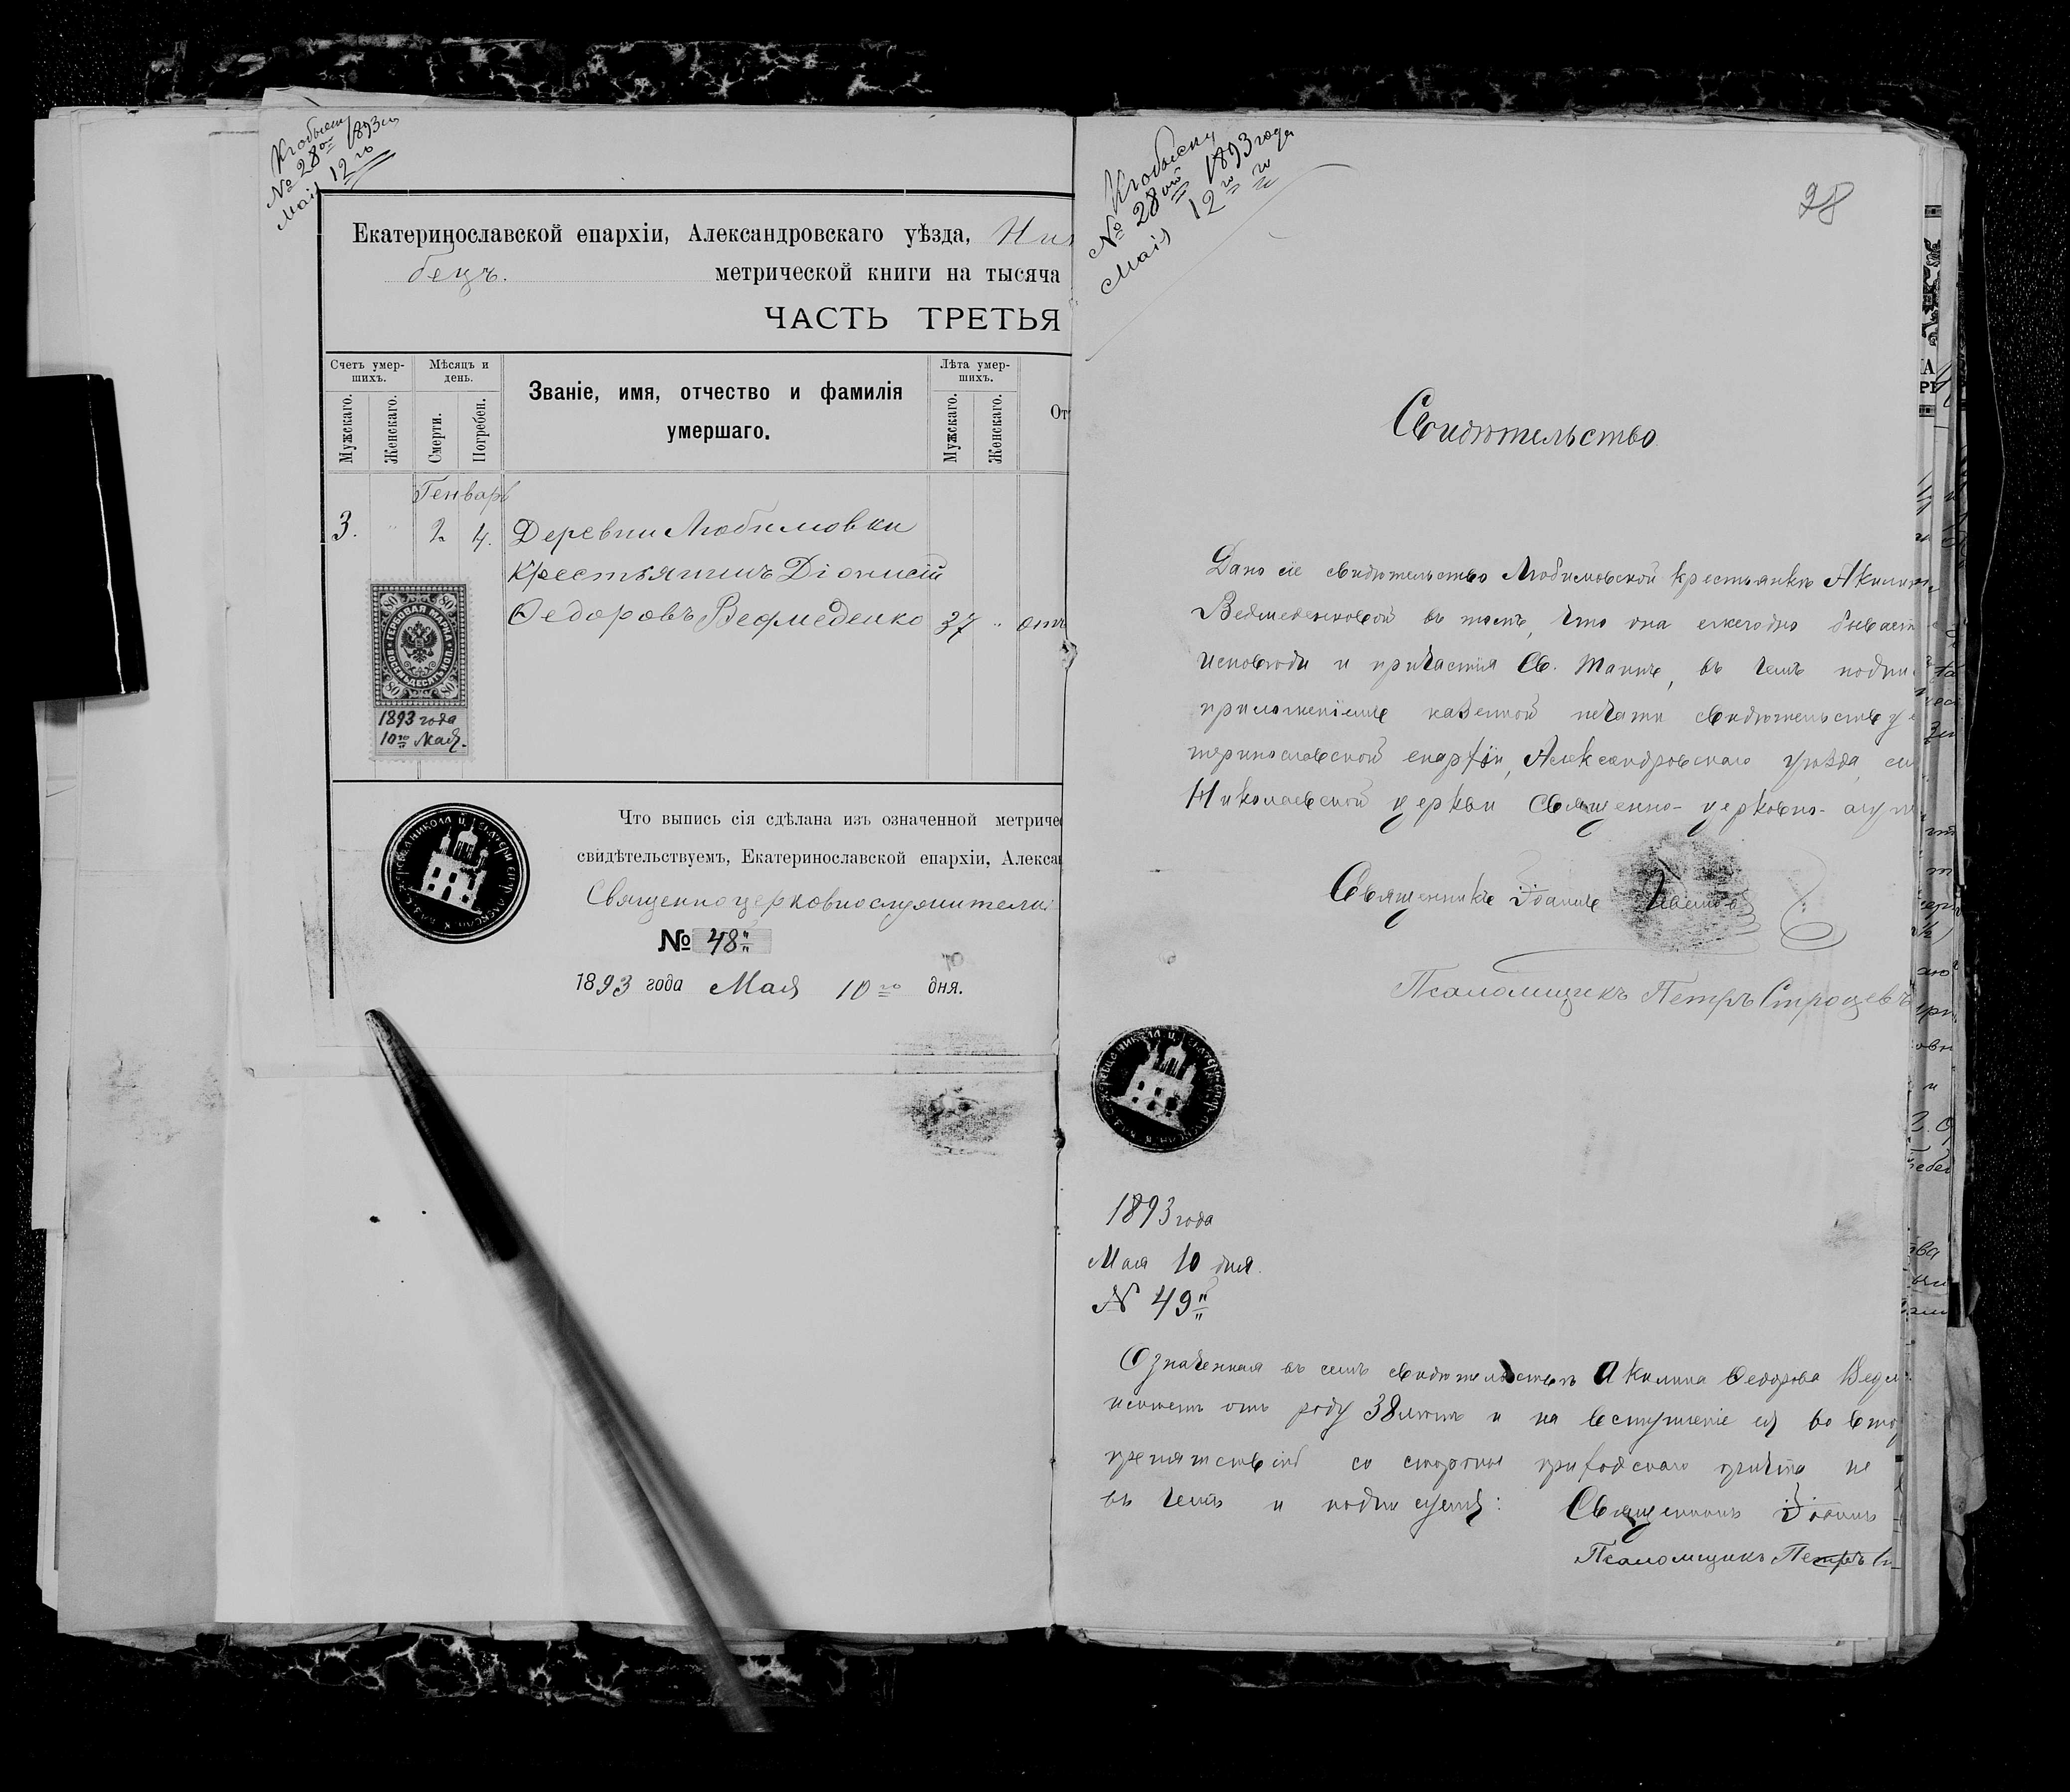 Къ обыску
№ 28ой 1893го
Маія 12го
Екатеринославской епархіи, Александровскаго уѣзда, Ни
бецъ. метрической книги на тысяча
ЧАСТЬ ТРЕТЬЯ
Счетъ умершихъ.
Мѣсяцъ и день.
Званіе, имя, отчество и фамилія умершаго.
Лѣта умершихъ.
От
Мужскаго.
Женскаго.
Смерти.
Погребен.
Мужскаго.
Женскаго.
Генварь
3. " 2 4. Деревни Любимовки
крестьянинъ Діонисій
Ѳедоровъ Ведмеденко 37 " отъ
80 80
ГЕРБОВАЯ МАРКА
ВОСЕМЬДЕСЯТЪ КОП.
80 80
1893 года
10го Мая.
Что выпись сія сдѣлана изъ означенной метриче
свидѣтельствуемъ, Екатеринославской епархіи, Алекса
Священноцерковнослужители:
№ 48
1893 года Мая 10го дня.
Къ обыску
№ 28ой 1893 года
Маія 12го
28
Свидѣтельство
Дано сіе свидѣтельство Любимовской крестьянкѣ Акилин
Ведмеденковой въ томъ, что она ежегодно бывает
исповѣди и причастія Св. Таинъ, въ чемъ подпи
приложеніемъ казенной печати свидѣтельству
теринославской епархіи, Александровскаго уѣзда
Николаевской церкви Священно-церковно-слу
Священникъ Іоаннъ
Псаломщикъ Петръ Строцевъ
1893 года
Мая 10 дня.
N 49
Означенная въ семъ свидѣтельствѣ Акилина Ѳедорова Ведм
имѣетъ отъ роду 38 лѣтъ и на вступленіе ея во вто
препятствій со стороны приходскаго причта не
въ чемъ и подписуемъ: Священникъ Іоаннъ
Псаломщикъ Петръ С